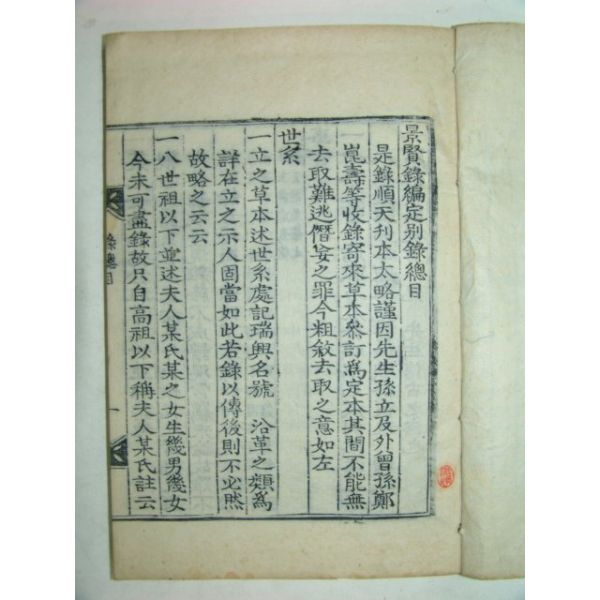 景賢錄編定別錄總目
是錄順天刊本太略謹因先生孫立及外曾孫鄭
崑壽等收錄寄來草本參訂爲定本其間不能無
去取難逃僭妄之罪今粗敘去取之意如左
世系
一立之草本述世系處記瑞興名號 沿革之類爲
詳在立之示人固當如此若錄以傳後則不必然
故略之云云
一八世祖以下並述夫人某氏某之女生幾男幾女
今未可盡錄故只自高祖以下稱夫人某氏註云
錄總目
一